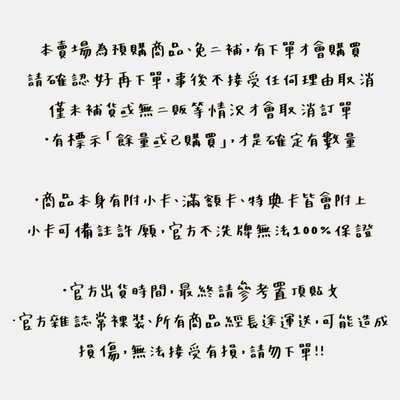 本賣場為預購商品、免二補,有下單才會購買
請確認好再下單,事後不接受任何理由取消
僅未補貨或無二販等情況才會取消訂單
·有標示「餘量或已購買」,才是確定有數量
·商品本身有附小卡、滿額卡、特典卡皆會附上
小卡可備註許願,官方不洗牌無法100%保證
·官方出貨時間,最終請參考置頂貼文
·官方雜誌常裸裝、所有商品經長途運送,可能造成
損傷,無法接受有損,請勿下單!!